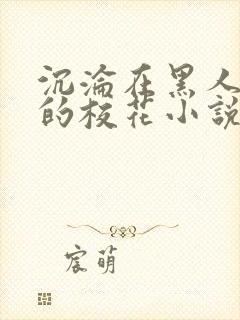 沉淪在黑人
的校花小說
宸萌